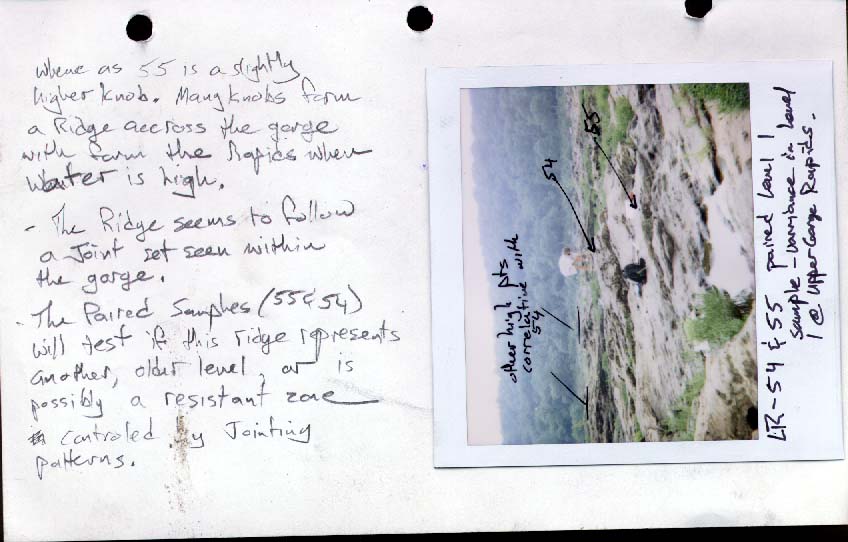 whene as 55 is a slightly
higher knob. Many knobs form
a Ridge accross the gorge
with form the Rapids when
Water is high.
- The Ridge seems to follow
a Joint set seen within
the gorge.
- The Paired Samples (55 & 54)
will test if this ridge represents
another, older level, or is
possibly a resistant zone
controled by Jointing
patterns.
54
55
other high pts
correlative with
54
LR-54 & 55 paired level 1
sample - varriance in level
1 @ Upper Gorge Rapids.